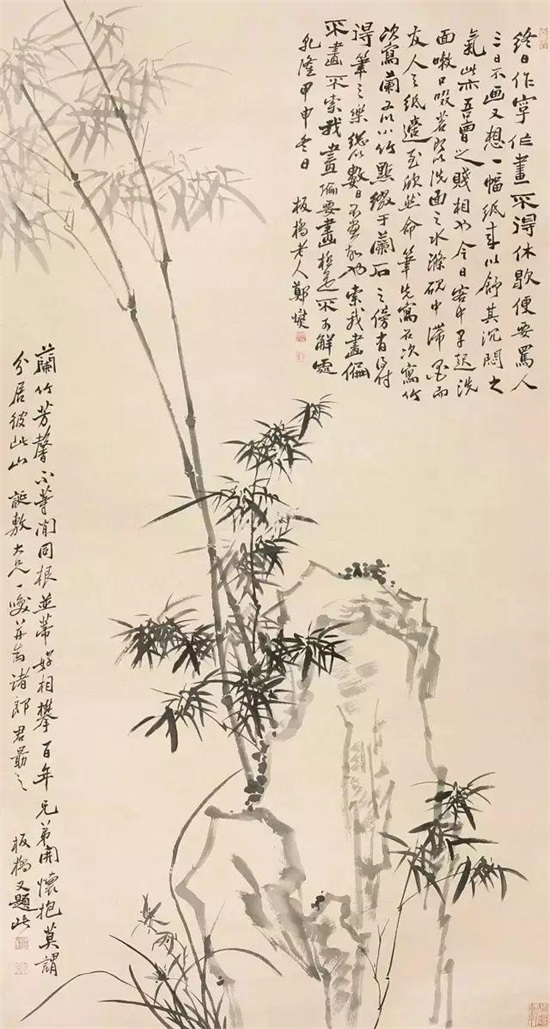 終日作字作畫不得休歇便要罵人
三日不画又想一幅紙來以舒其沉悶之
氣此亦吾曹之賤相也今日客中早起洗
面嗽口啜茗即以洗面之水滌硯中滯墨而
友人之紙適至欣然命筆先寫石次寫竹
次寫蘭又以小竹點綴于蘭石之傍
得筆之樂總以數日不畫故也索我畫偏
不畫不索我畫偏要畫極是不可解處
乾隆甲申冬日 板橋老人鄭燮
蘭竹芳馨不等閒同根並蒂好相攀百年兄弟開懷抱莫謂
分居彼此山 誕敷大兄一笑并為諸郎君勗之 板橋又題此